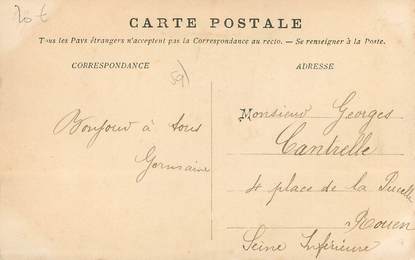 20 €
CARTE POSTALE
Tous les Pays étrangers n'acceptent pas la Correspondance au recto. — Se renseigner à la Poste.
CORRESPONDANCE
ADRESSE
Bonjour à tous
Germaine
Monsieur Georges
Cantrelle
4 place de la Pucelle
Rouen
Seine Inférieure